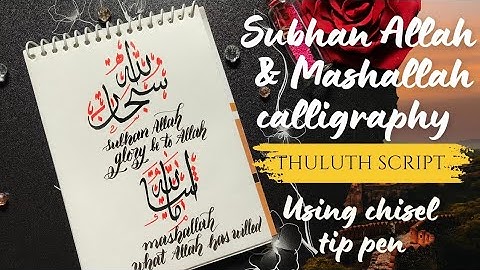 سبحان الله
subhan Allah
glory be to Allah
ما شاء الله
mashallah
what Allah has willed
Subhan Allah
& Mashallah
calligraphy
THULUTH SCRIPT
Using chisel
tip pen